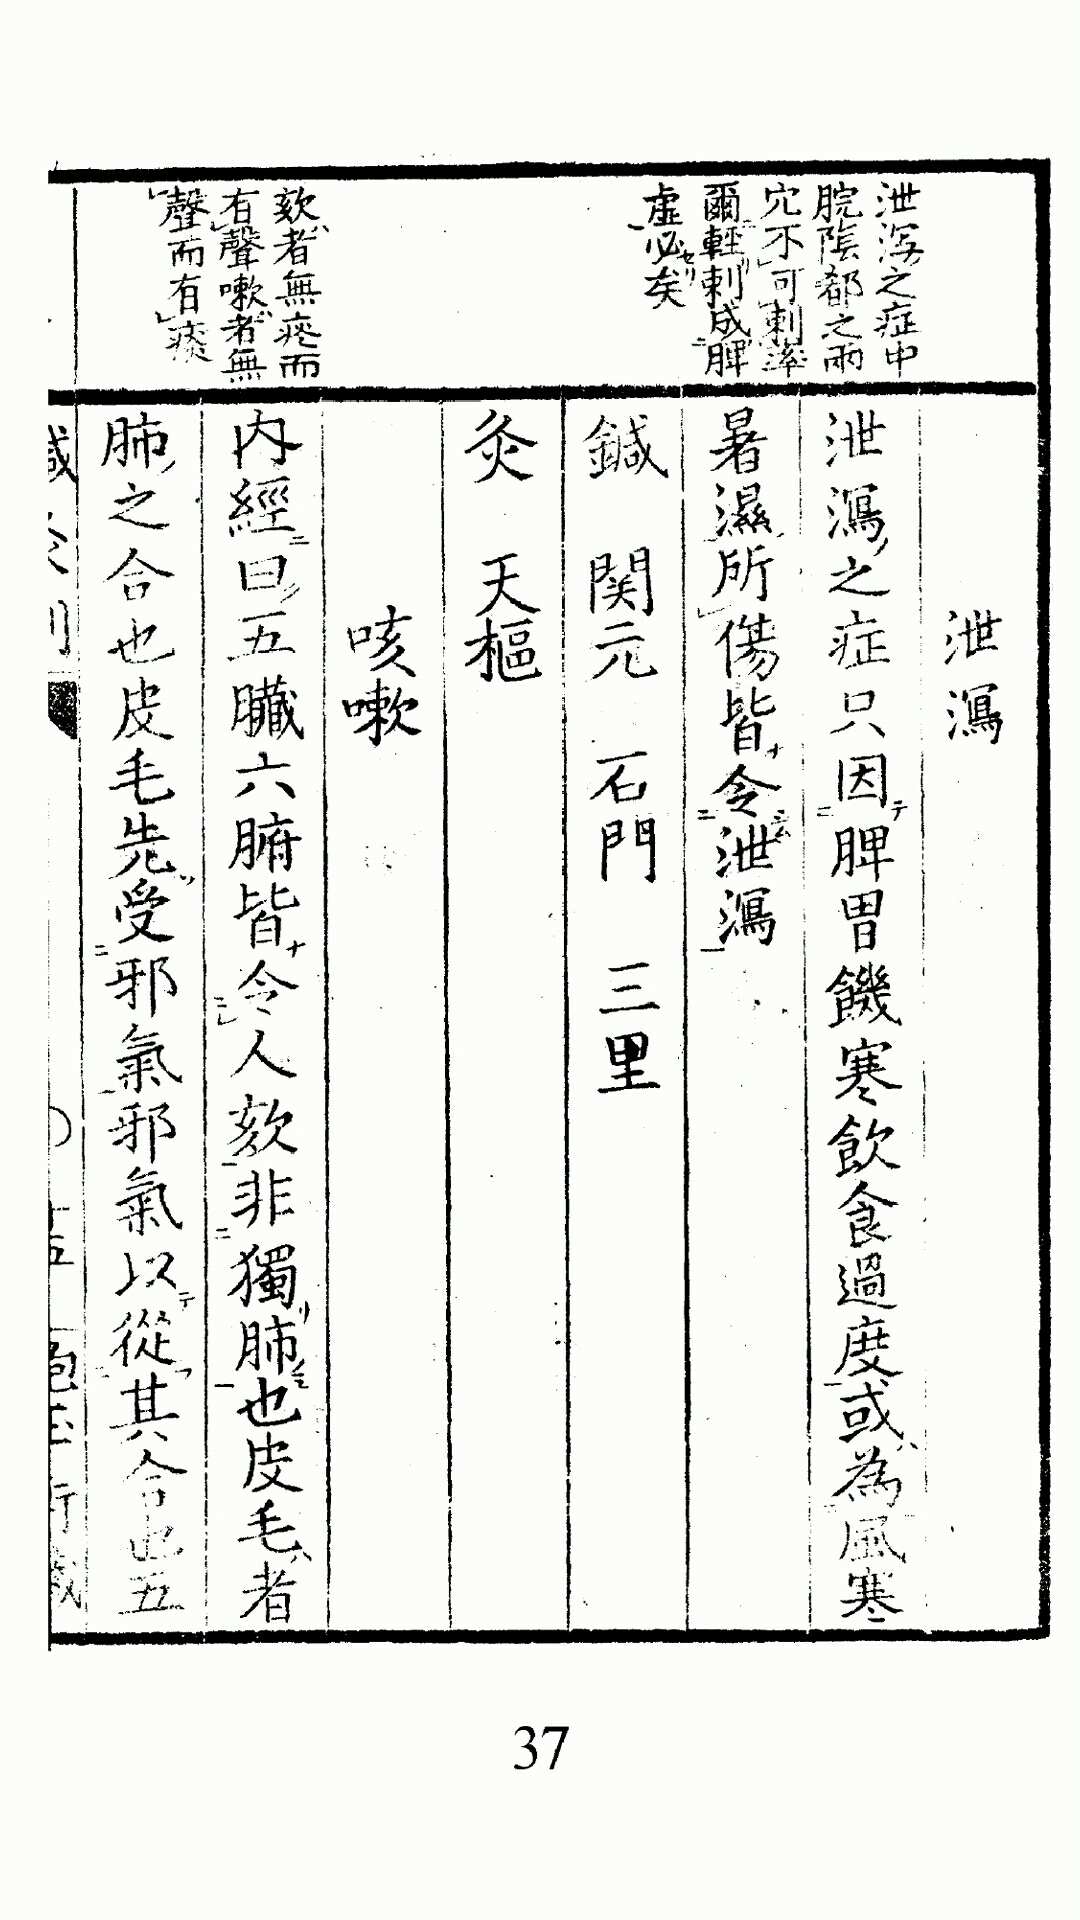 泄瀉之症中
脘陰都之兩
穴不可刺率
爾輕刺成脾
虛必矣
欬者無痰而
有聲嗽者無
聲而有痰
泄瀉
泄瀉之症只因脾胃饑寒飲食過度或為風寒
暑濕所傷皆令泄瀉
鍼 関元 石門 三里
灸 天樞
咳嗽
内經曰五臟六腑皆令人欬非獨肺也皮毛者
肺之合也皮毛先受邪氣邪氣以從其合也五
37